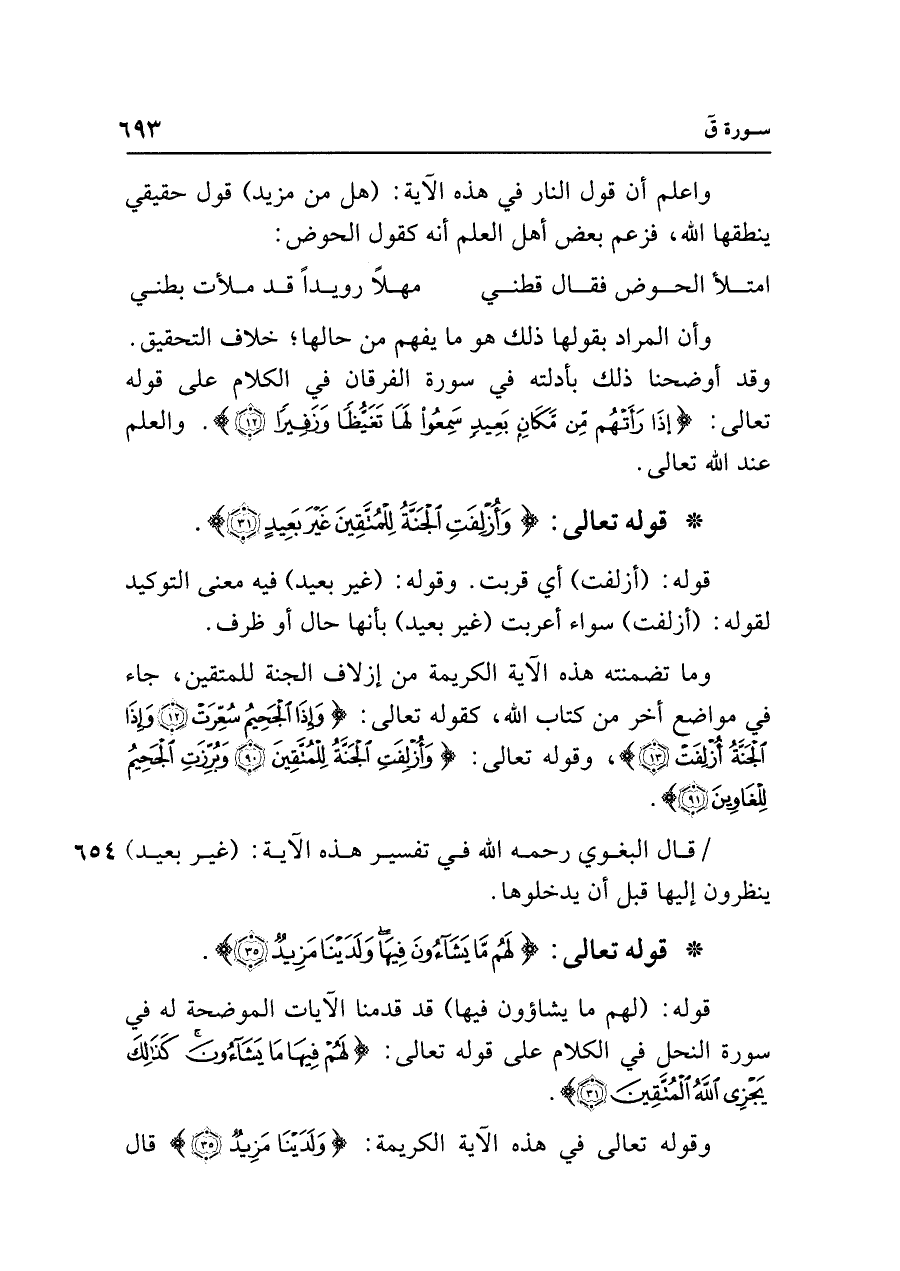 سورة قٓ ٦٩٣
واعلم أن قول النار في هذه الآية: (هل من مزيد) قول حقيقي
ينطقها الله، فزعم بعض أهل العلم أنه كقول الحوض:
امتلأ الحوض فقال قطني مهلاً رويداً قد ملأت بطني
وأن المراد بقولها ذلك هو ما يفهم من حالها؛ خلاف التحقيق.
وقد أوضحنا ذلك بأدلته في سورة الفرقان في الكلام على قوله
تعالى: ﴿إِذَا رَأَتْهُم مِّن مَّكَانٍۭ بَعِيدٍ سَمِعُوا۟ لَهَا تَغَيُّظًا وَزَفِيرًا ۝١٢﴾. والعلم
عند الله تعالى.
* قوله تعالى: ﴿وَأُزْلِفَتِ ٱلْجَنَّةُ لِلْمُتَّقِينَ غَيْرَ بَعِيدٍ ۝٣١﴾.
قوله: (أزلفت) أي قربت. وقوله: (غير بعيد) فيه معنى التوكيد
لقوله: (أزلفت) سواء أعربت (غير بعيد) بأنها حال أو ظرف.
وما تضمنته هذه الآية الكريمة من إزلاف الجنة للمتقين، جاء
في مواضع أخر من كتاب الله، كقوله تعالى: ﴿وَإِذَا ٱلْجَحِيمُ سُعِّرَتْ ۝١٢ وَإِذَا
ٱلْجَنَّةُ أُزْلِفَتْ ۝١٣﴾، وقوله تعالى: ﴿وَأُزْلِفَتِ ٱلْجَنَّةُ لِلْمُتَّقِينَ ۝٩٠ وَبُرِّزَتِ ٱلْجَحِيمُ
لِلْغَاوِينَ ۝٩١﴾.
/ قال البغوي رحمه الله في تفسير هذه الآية: (غير بعيد) ٦٥٤
ينظرون إليها قبل أن يدخلوها.
* قوله تعالى: ﴿لَهُم مَّا يَشَآءُونَ فِيهَا ۖ وَلَدَيْنَا مَزِيدٌ ۝٣٥﴾.
قوله: (لهم ما يشاؤون فيها) قد قدمنا الآيات الموضحة له في
سورة النحل في الكلام على قوله تعالى: ﴿لَهُمْ فِيهَا مَا يَشَآءُونَ ۚ كَذَٰلِكَ
يَجْزِى ٱللَّهُ ٱلْمُتَّقِينَ ۝٣١﴾.
وقوله تعالى في هذه الآية الكريمة: ﴿وَلَدَيْنَا مَزِيدٌ ۝٣٥﴾ قال